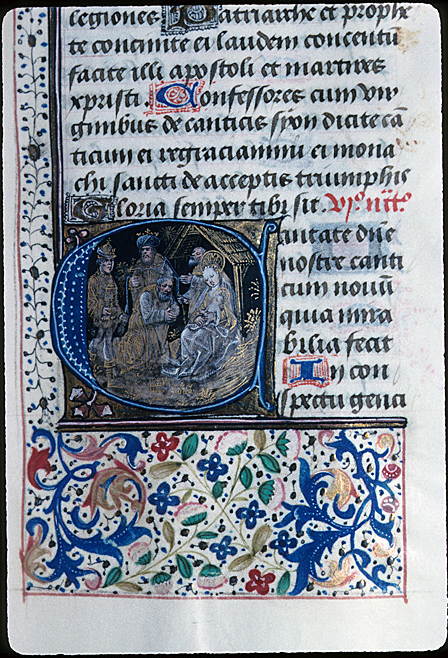 legiones. Patriarche et prophe
te concinite ei laudem concentū
facite illi apostoli et martires
xpristi. Confessores cum vir
ginibus de canticis syon dicite cā
ticum ei regracianimi ei mona
chi sancti de acceptis triumphis
Gloria semper tibi sit.
Cantate dne
nostre canti
cum nouū
quia mira
bilia fecit
In con
spectu genci